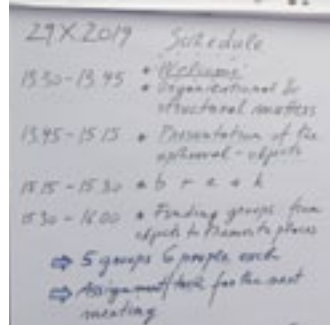 29X2019 Schedule
13.30-13.45 • "Welcome"
• Organizational &
structural matters
13.45-15.15 • Presentation of the
ephemeral-objects
15.15-15.30 • b r e a k
15.30-16.00 • Finding groups from
objects to places
⇒ 5 groups 6 people each
⇒ Assignment/task for the next
meeting